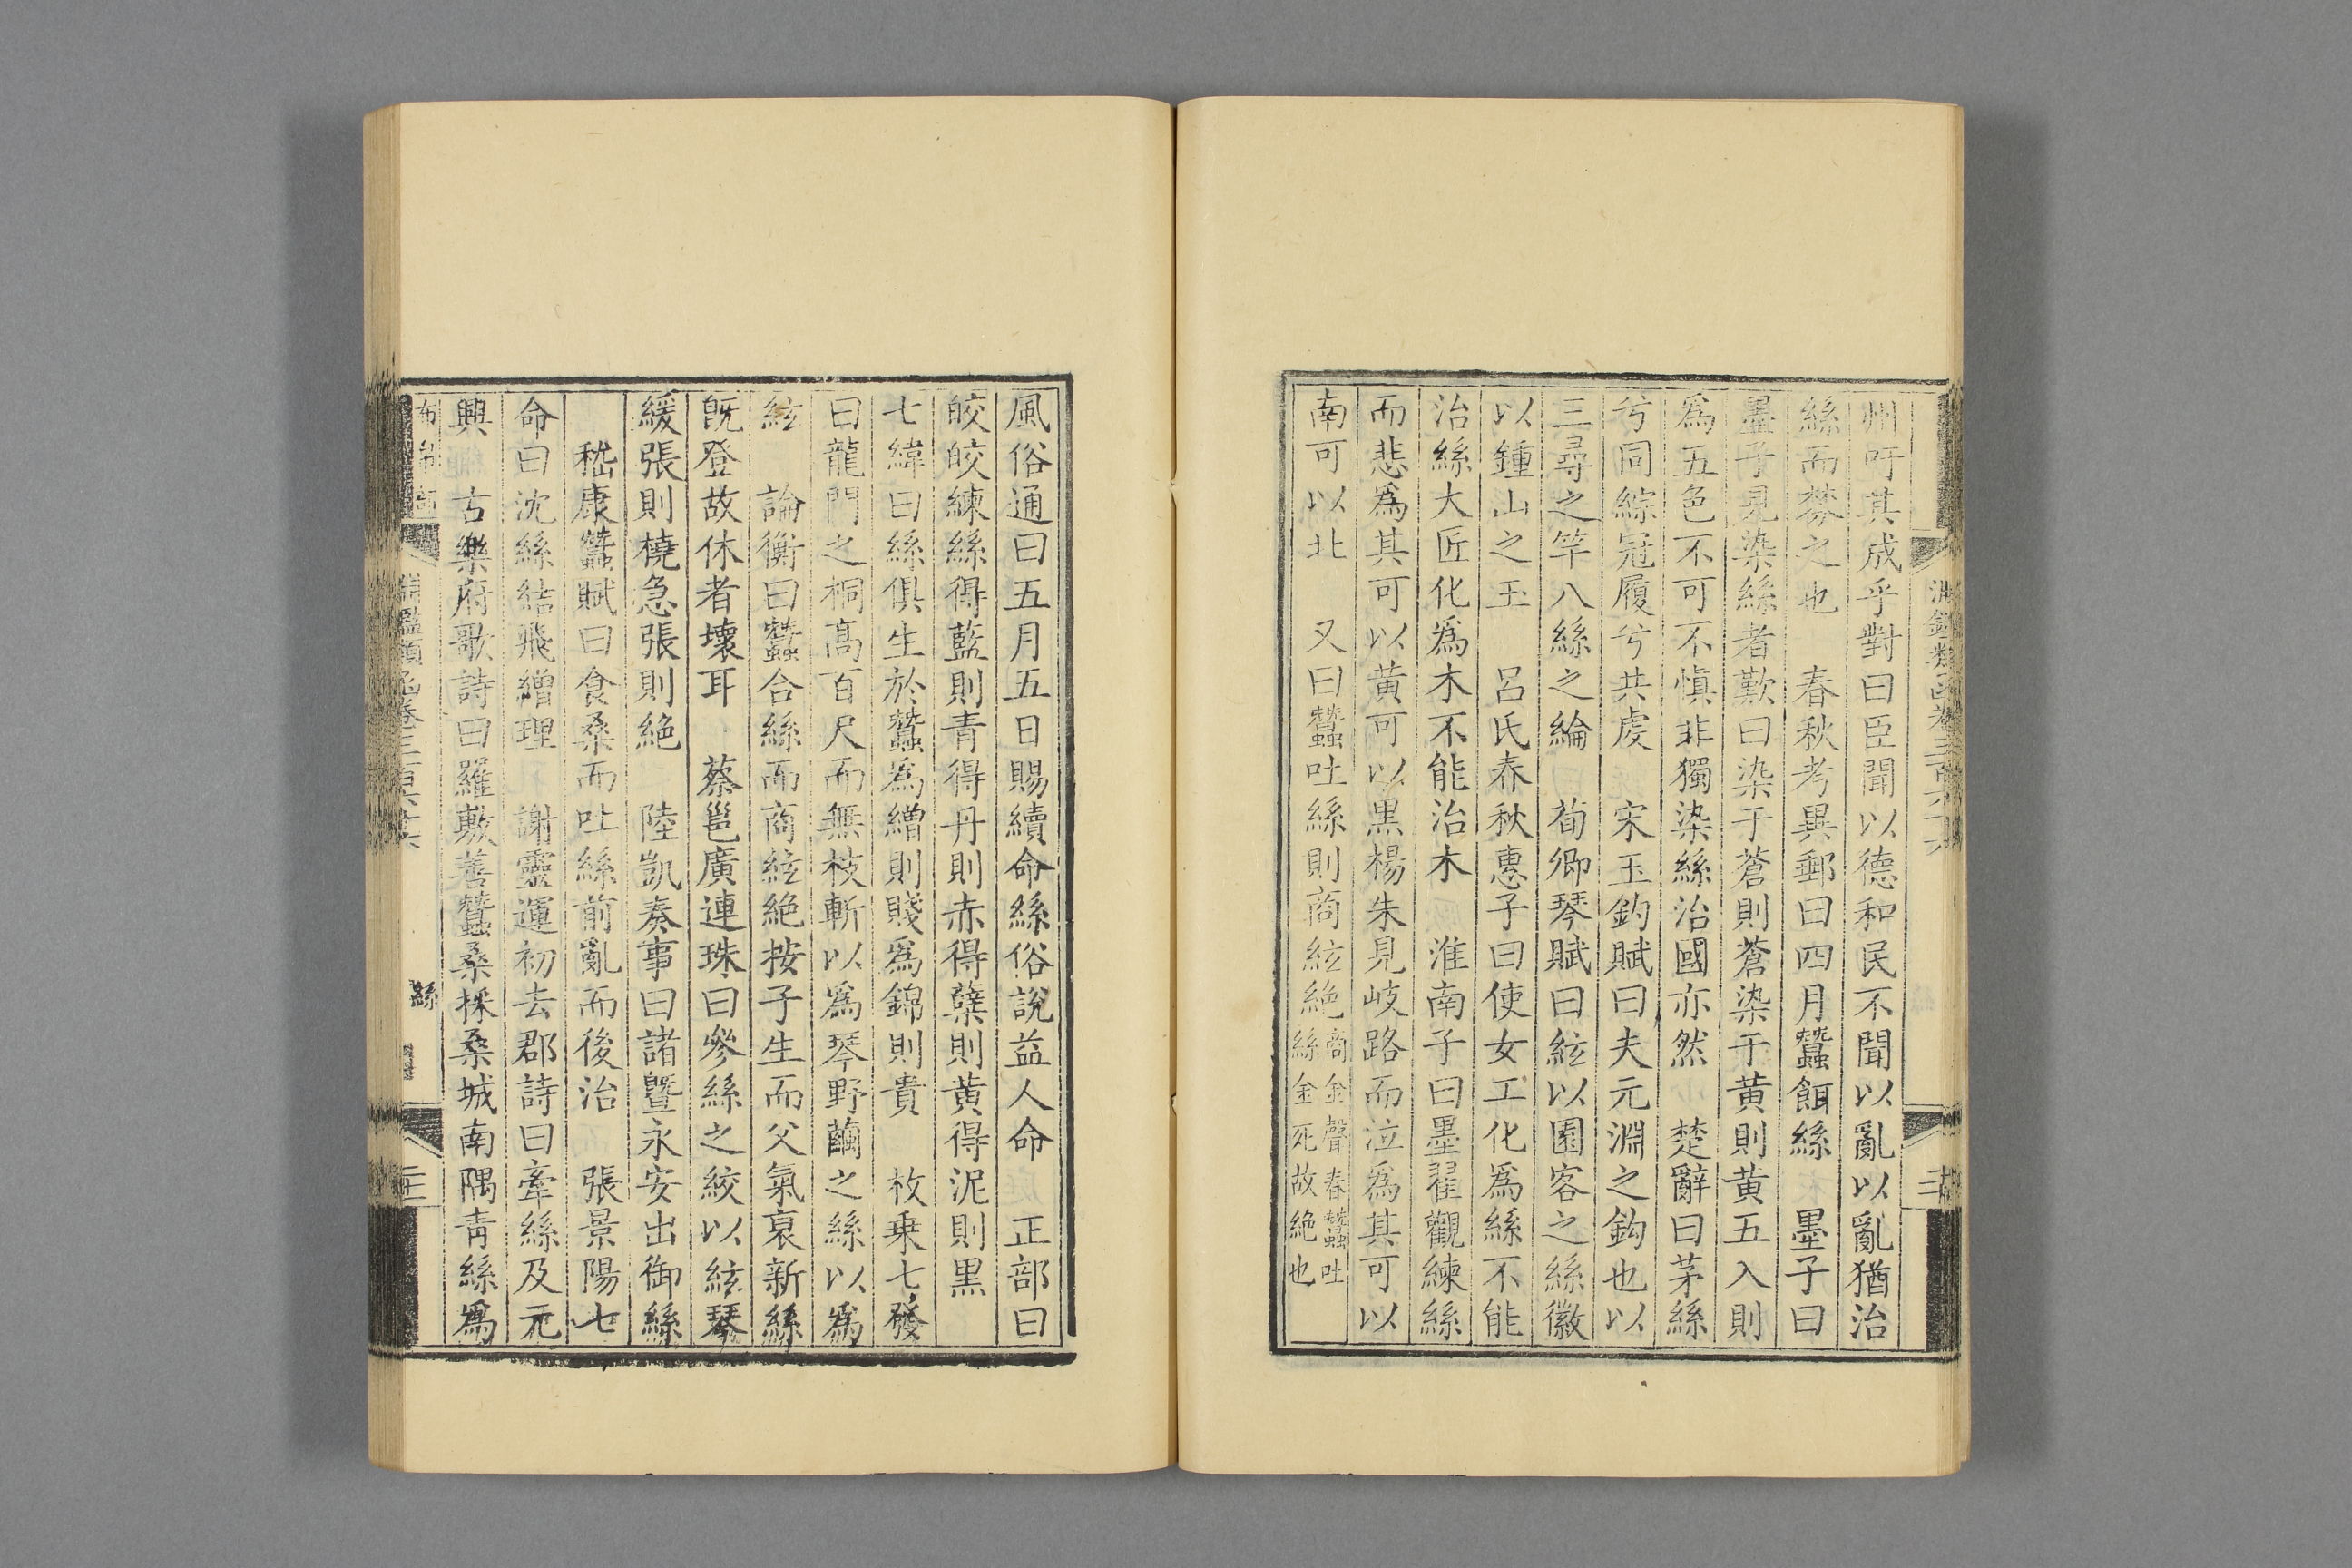 州吁其成乎對曰臣聞以德和民不聞以亂以亂猶治
絲而棼之也　春秋考異郵曰四月蠶餌絲　墨子曰
墨子見染絲者歎曰染于蒼則蒼染于黃則黃五入則
爲五色不可不慎非獨染絲治國亦然　楚辭曰茅絲
兮同綜冠履兮共絇　宋玉釣賦曰夫元淵之鈎也以
三尋之竿八絲之綸　荀卿琴賦曰絃以園客之絲徽
以鍾山之玉　呂氏春秋惠子曰使女工化爲絲不能
治絲大匠化爲木不能治木　淮南子曰墨翟觀練絲
而悲爲其可以黃可以黑楊朱見岐路而泣爲其可以
南可以北　又曰蠶吐絲則商絃絶商金聲春蠶吐
絲金死故絶也
風俗通曰五月五日賜續命絲俗說益人命　正部曰
皎皎練絲得藍則青得丹則赤得蘗則黃得泥則黑
七緯曰絲俱生於蠶爲繒則賤爲錦則貴　枚乗七發
曰龍門之桐高百尺而無枝斬以爲琴野繭之絲以爲
絃　論衡曰蠶合絲而商絃絶按子生而父氣衰新絲
旣登故休者壞耳　蔡邕廣連珠曰參絲之絞以絃琴
緩張則橈急張則絶　陸凱奏事曰諸曁永安出御絲
嵇康蠶賦曰食桑而吐絲前亂而後治　張景陽七
命曰沈絲結飛繒理　謝靈運初去郡詩曰牽絲及元
興　古樂府歌詩曰羅敷善蠶桑採桑城南隅青絲爲
絲